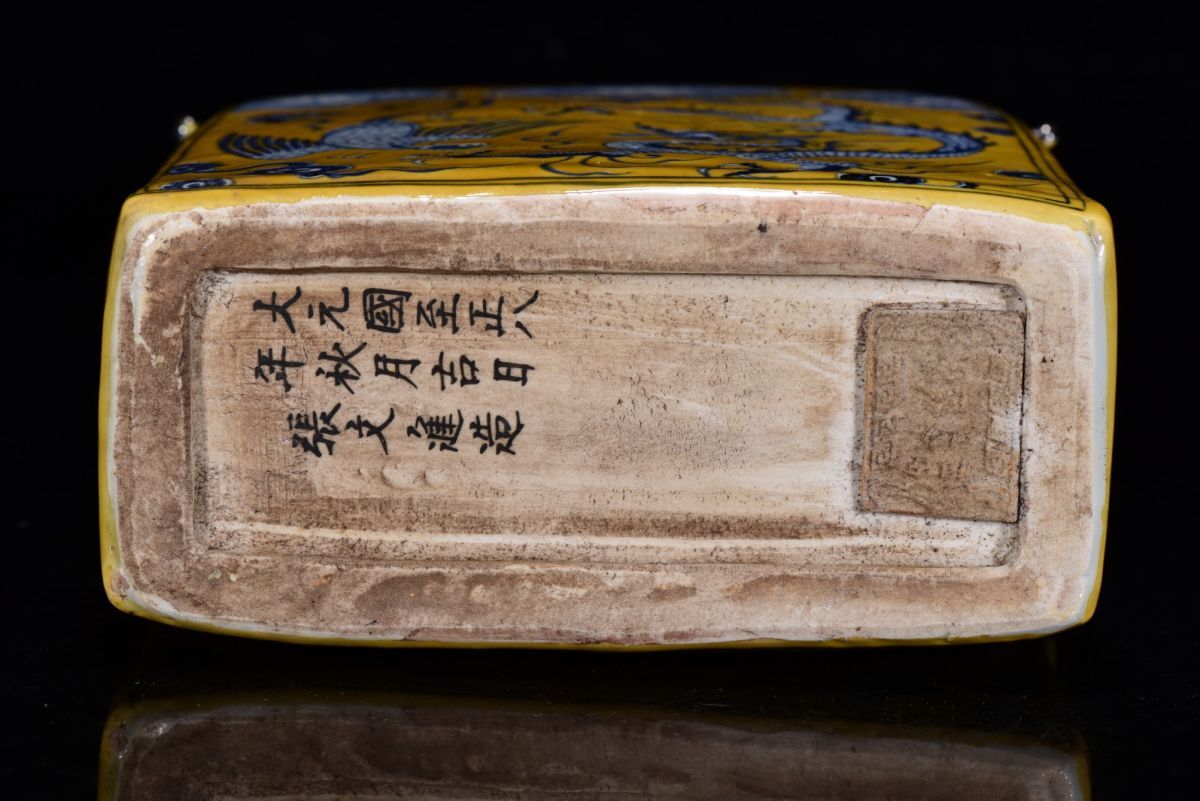 大元國至正八
年秋月吉日
張文進造